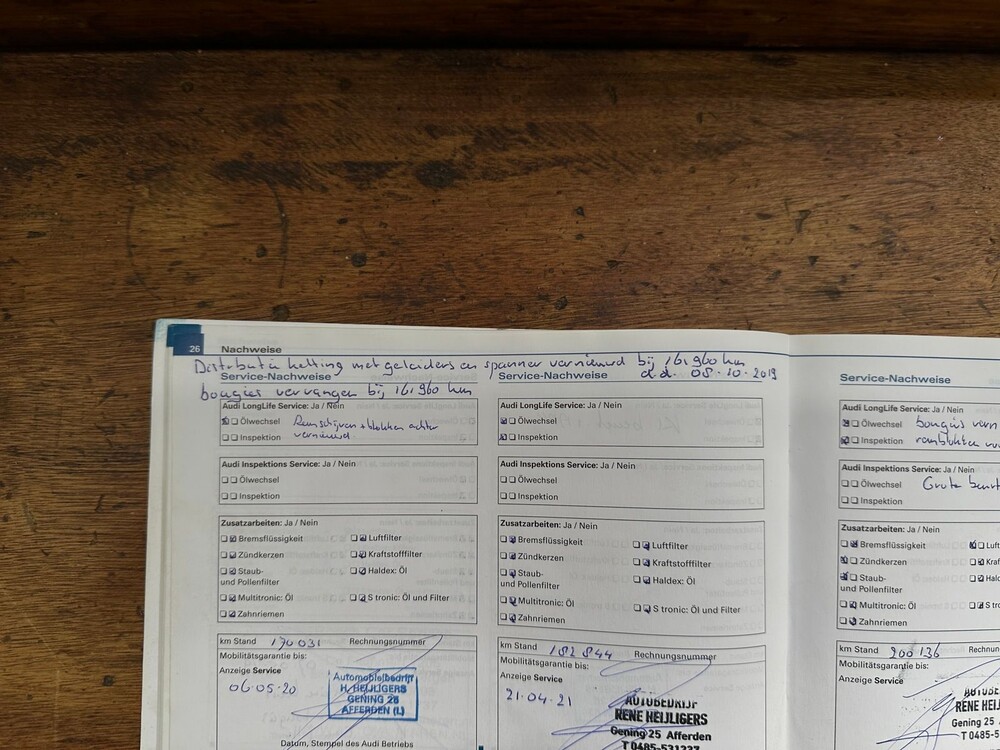 26 Nachweise
Distributie ketting met geleiders en spanner vernieuwd bij 161.960 km
d.d. 08-10-2019
Service-Nachweise
bougies vervangen bij 161.960 km
Audi LongLife Service: Ja / Nein
Ölwechsel Remschijven + blokken achter
Inspektion vernieuwd
Audi Inspektions Service: Ja / Nein
Ölwechsel
Inspektion
Zusatzarbeiten: Ja / Nein
Bremsflüssigkeit Luftfilter
Zündkerzen Kraftstofffilter
Staub- Haldex: Öl
und Pollenfilter
Multitronic: Öl S tronic: Öl und Filter
Zahnriemen
km Stand 170 031 Rechnungsnummer
Mobilitätsgarantie bis:
Anzeige Service
06-05-20
Automobielbedrijf
H. HEIJLIGERS
GENING 25
AFFERDEN (L)
Datum, Stempel des Audi Betriebs
Service-Nachweise
Audi LongLife Service: Ja / Nein
Ölwechsel
Inspektion
Audi Inspektions Service: Ja / Nein
Ölwechsel
Inspektion
Zusatzarbeiten: Ja / Nein
Bremsflüssigkeit Luftfilter
Zündkerzen Kraftstofffilter
Staub- Haldex: Öl
und Pollenfilter
Multitronic: Öl S tronic: Öl und Filter
Zahnriemen
km Stand 182 844 Rechnungsnummer
Mobilitätsgarantie bis:
Anzeige Service
21-04-21
AUTOBEDRIJF
RENE HEIJLIGERS
Gening 25 Afferden
T 0485-531237
Service-Nachweise
Audi LongLife Service: Ja / Nein
Ölwechsel bougies vern
Inspektion
Audi Inspektions Service: Ja / Nein
Ölwechsel Grote beurt
Inspektion
Zusatzarbeiten: Ja / Nein
Bremsflüssigkeit Luft
Zündkerzen Kraf
Staub- Halde
und Pollenfilter
Multitronic: Öl S tro
Zahnriemen
km Stand 200 136 Rechnungsnummer
Mobilitätsgarantie bis:
Anzeige Service
AUTOBE
RENE HEIJ
Gening 25
T 0485-5